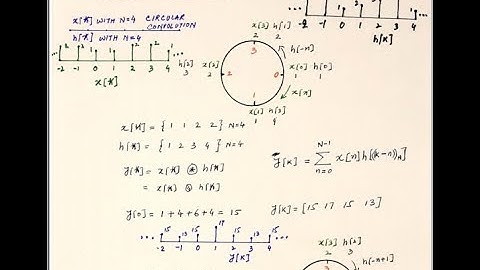 x[k] WITH N=4 CIRCULAR CONVOLUTION
h[k] WITH N=4
-2 -1 0 1 2 3 4
x[k]
x[3] h[1]
2 2
h[-n]
h[2] x[2]
3 2
2
3
0
1
x[0] h[0]
1 1
x[n]
x[1] h[3]
1 4
-2 -1 0 1 2 3 4
h[k]
x[k] = { 1 1 2 2 } N=4
h[k] = { 1 2 3 4 } N=4
y[k] = x[k] ⊛ h[k]
= x[k] h[k]
y[k] = Σ x[n] h[(k-n)]
N-1
n=0
y[0] = 1+4+6+4 = 15
y[k] = [15 17 15 13]
15 13 15 17 15 13 15
-2 -1 0 1 2 3 4
y[k]
x[3] h[2]
h[-n+1]
3